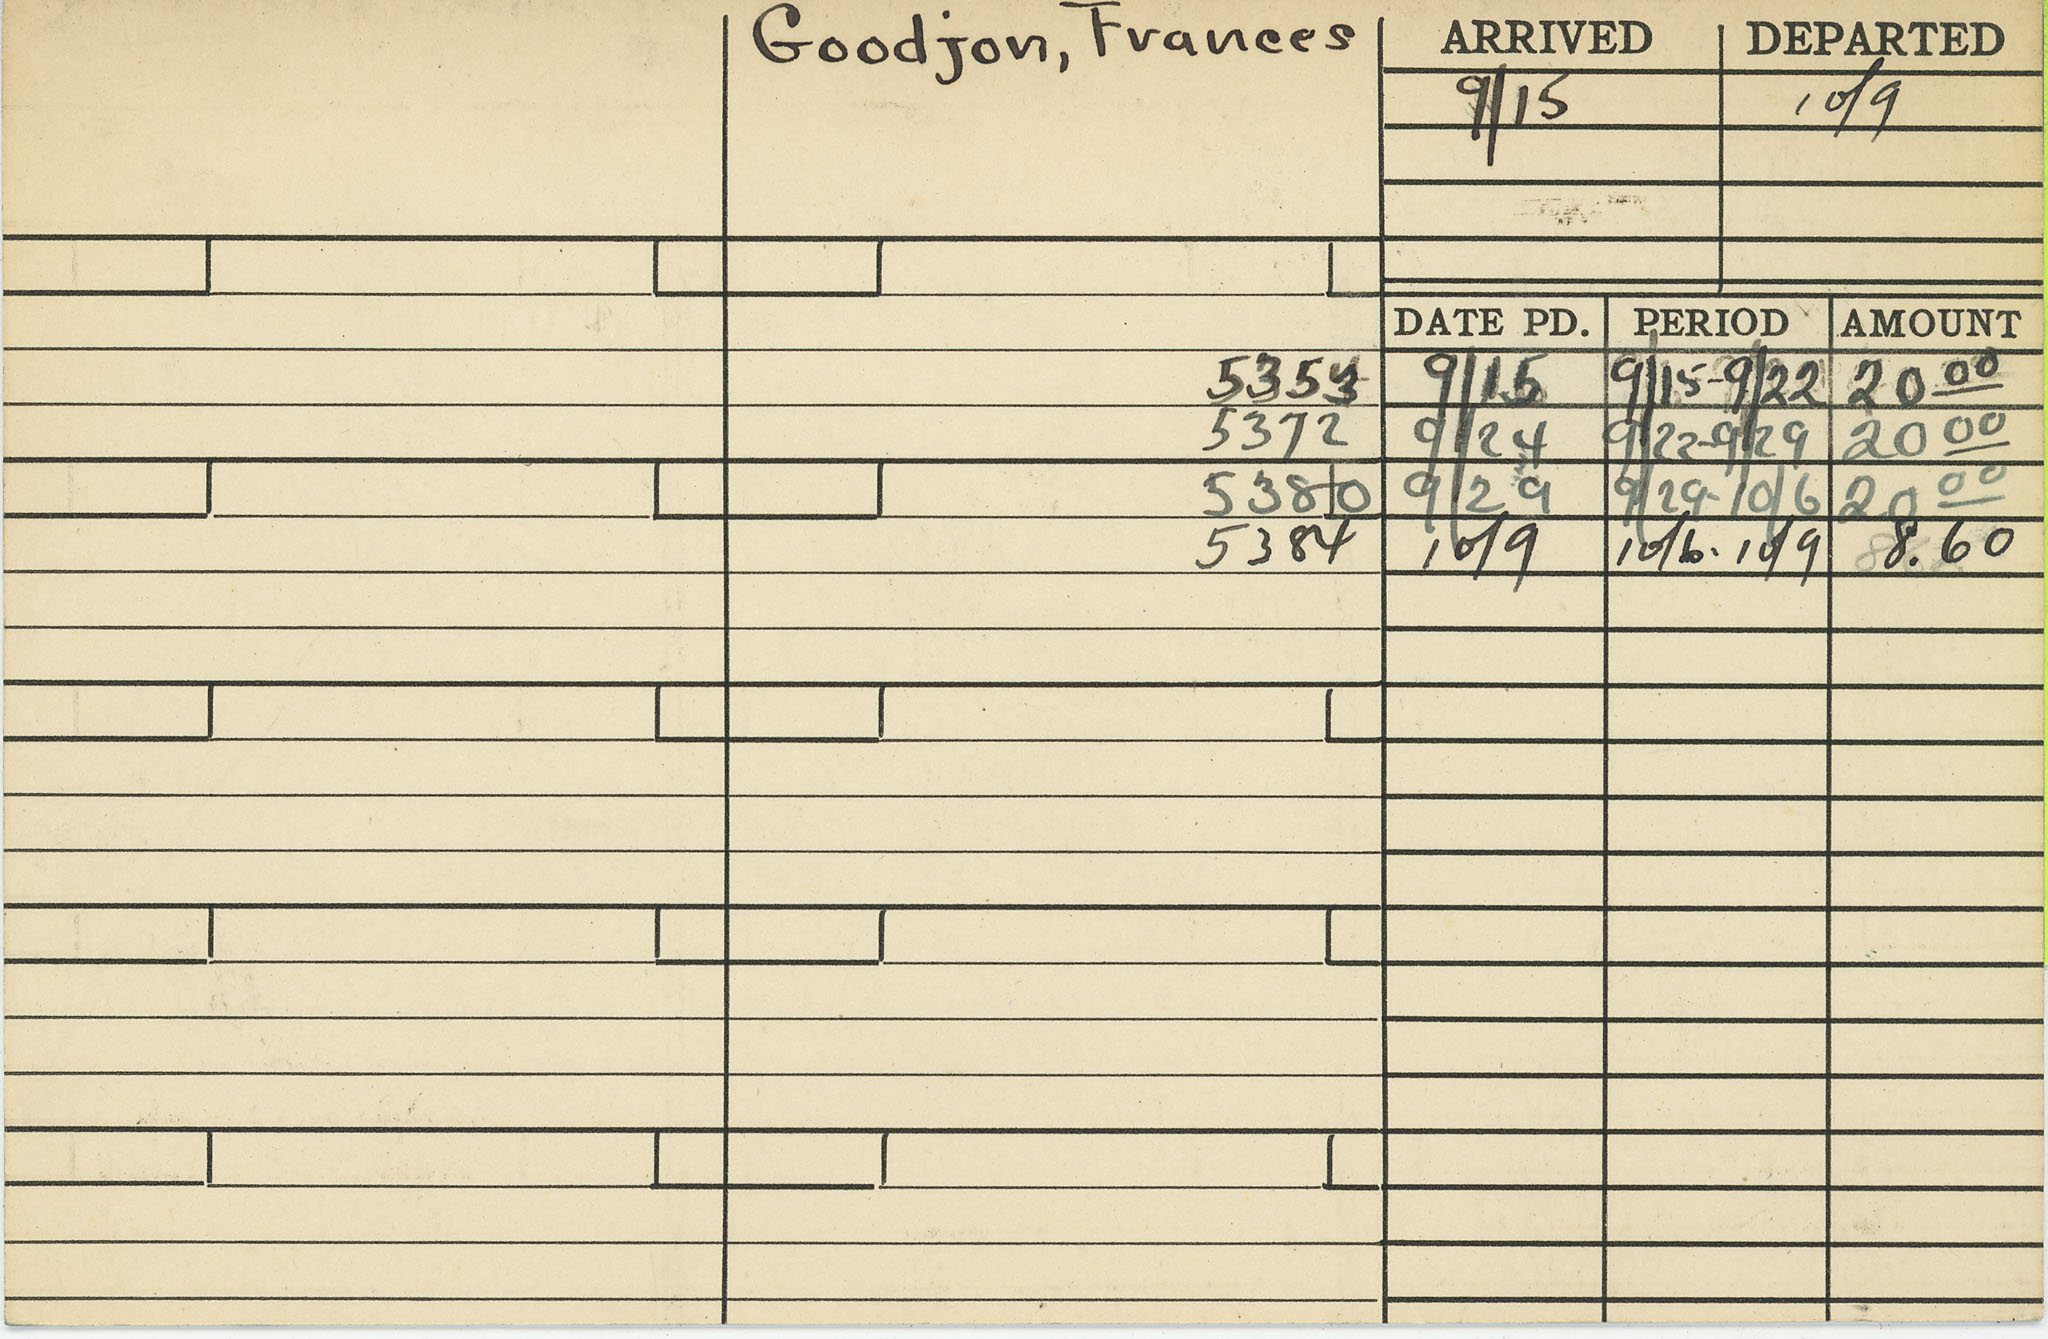 Goodjon, Frances
ARRIVED DEPARTED
9/15 10/9
DATE PD. PERIOD AMOUNT
5353 9/15 9/15-9/22 20 00
5372 9/24 9/22-9/29 20 00
5380 9/29 9/29-10/6 20 00
5384 10/9 10/6-10/9 8.60